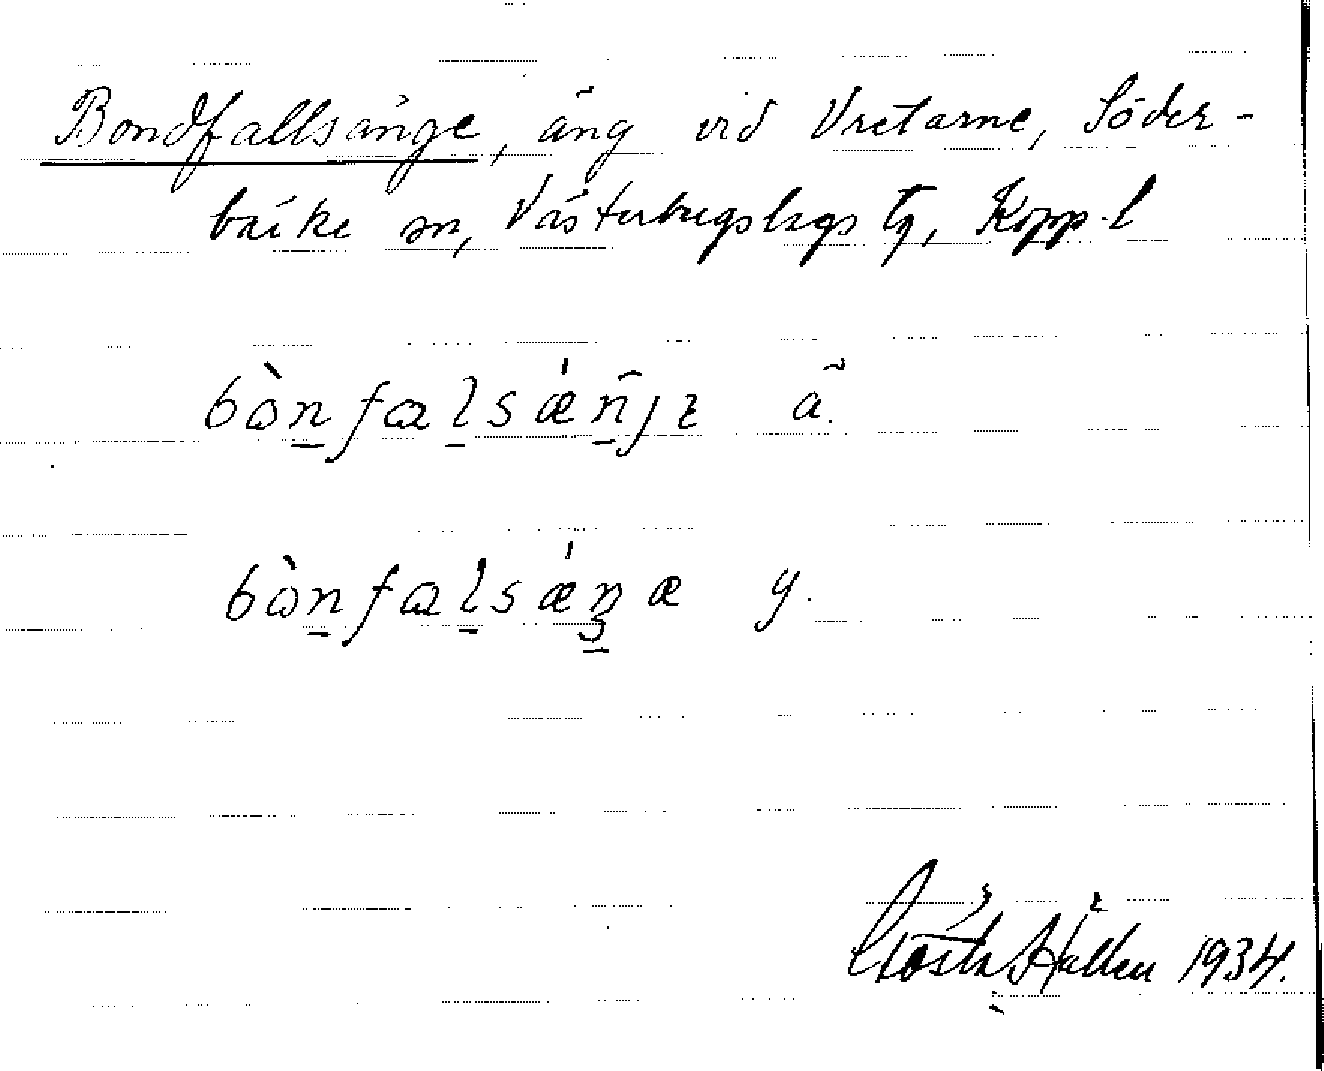 Bondfallsänge, äng vid Vretarne, Söder-
bärke sn, Västerbergslags tg, Kopp. l
bὼnfalsǽñȷɛ ä.
bὼnfalsǽŋæ y.
Gösta Hållén 1934.